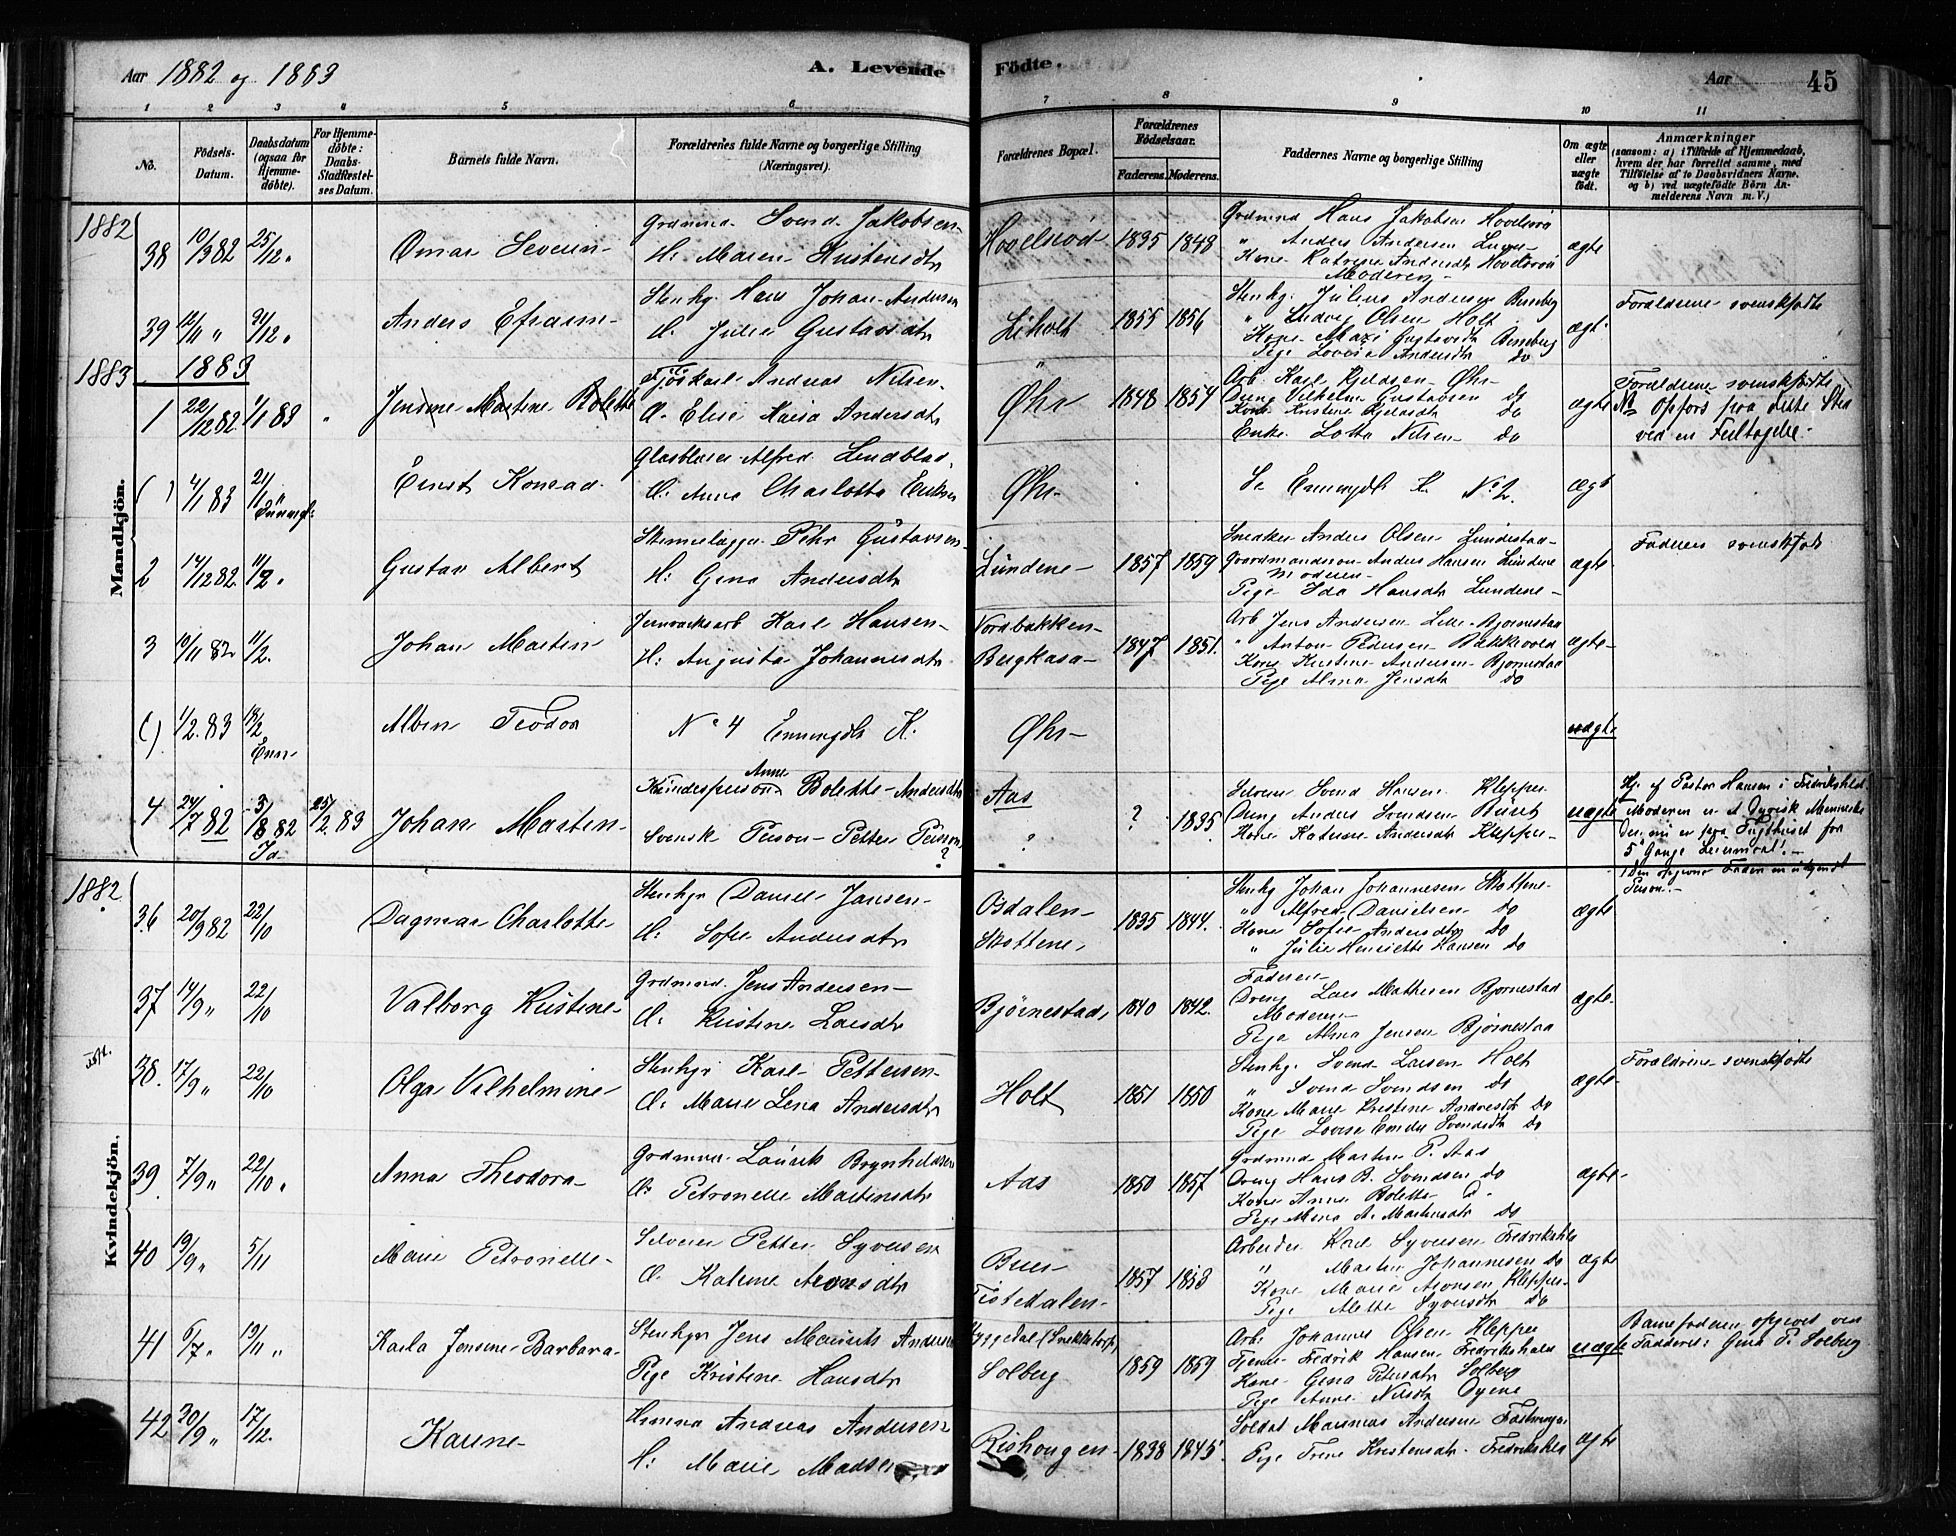 Aar 1882 og 1883
A. Levende Födte.
Aar 45
1 2 3 4 5 6 7 8 9 10 11
No.
Födsels-Datum.
Daabsdatum (ogsaa for Hjemme-döbte).
For Hjemme-döbte: Daabs-Stadfæstelses Datum.
Barnets fulde Navn.
Forældrenes fulde Navne og borgerlige Stilling (Næringsvei).
Forældrenes Bopæl.
Forældrenes Födselsaar.
Faderens. Moderens.
Faddernes Navne og borgerlige Stilling
Om ægte eller uægte födt.
Anmærkninger
(saasom: a) i Tilfælde af Hjemmedaab, hvem der har forrettet samme, med Tilföielse af to Daabsvidners Navne. og b) ved uægtefödte Börn Anmelderens Navn m. V.)
Mandkjön.
1882
38 10/9 82 25/12 "
Omar Severin
Grdmnd. Svend Jakobsen
H: Maren Kristensdtr
1835 1848
Grdmnd Hans Jakobsen
" Anders Andersen
Kone Katrine Andersdtr
Moderen
ægte
39 12/11 " 31/12 "
Anders Efraim
Stenhg. Hans Johan Andersen
H: Julie Gustavsdtr
Liholt
1855 1856
Stenhg. Julius Andersen Berreberg
" Ludvig Olsen Holt
Pige Lovise Andersdtr do
ægt.
Forældrene svenskfødte
1883
1883
1 22/12 82 1/1 83 "
Jensine Martine Bolette
Fjøskarl Andreas Nilsen
H. Elise Maria Andersdtr
Øhr
1848 1854
Arb. Karl Kjeldsen Øhr
Dreng Vilhelm Gustavsen do
Kone Kristine Kjeldsdtr do
Enke Lotta Nilsen do
ægte
Forældrene svenskfødte
NB Opførs paa dette Sted
ved en Feiltagelse
( ) 4/1 83 21/1 "
Ernst Konrad
Glasblæser Alfred Lindblad
H: Anna Charlotte Eriksen
Øhr
Se Enningd. K. No 2.
ægt
2 14/12 82 11/2 "
Gustav Albert
Pehr Gustavsen
H: Gina Andersdtr
Lundene
1857 1859
Snedker Anders Olsen Lundestad
Gaardmandssøn Anders Hansen Lundene
Moderen
Pige Ida Hansdtr Lundene
ægte
Faderen svenskfødt
3 10/11 82 11/2.
Johan Martin
Karl Hansen
H: Augusta Johannesdtr
Nordbakken
Bergkasa
1847 1851.
Arb Jens Andersen Lille Bjørnestad
" Anton Pedersen Bakkevold
Kone Kristine Andersen Bjørnestad
Pige Alma Jensdtr do
ægte
( ) 1/2. 83 18/2 Enn
Albin Teodor
No 4 Enningdl K.
Øhr
uægte
4 24/7 82 3/8 82 25/2. 83
Johan Martin
Kvindesperson Anne Bolette Andersdtr
Svensk Person Petter Person ?
Aas
?
? 1835
Selveier Svend Hansen Klepper
Dreng Anders Svendsen Buset
Kone Katrine Andersdtr Klepper
uægte
Hj. af Pastor Hansen i Fredrikshald
Moderen er et Dyrisk Menneske
der nu er paa Tugthuset for
5te Gang Leiermaal.
Den opgivne Fader en ukjendt
Person.
Kvindekjön.
1882
36 20/9 82 22/10
Dagmar Charlotte
Stenhgr Daniel Jansen
H: Sofie Andersdtr
Osdalen
Skottene
1835 1844.
Stenhg Johan Johannesen Skottene
" Alfred Danielsen do
Kone Sofie Andersdtr do
" Julie Henriette Hansen do
ægte
37 14/9 " 22/10
Valborg Kristine
Grdmnd. Jens Andersen
H: Kristine Larsdtr
Bjørnestad
1840 1842.
Faderen
Dreng Lars Mathisen Bjørnestad
Moderen
Pige Alma Jensen Bjørnestad
ægte
38. 17/9 " 22/10
Olga Vilhelmine
Stenhgr Karl Pettersen
H: Marie Lena Andersdtr
Holt
1851 1850
Stenhg. Svend Larsen Holt
" Svend Svendsen do
Kone Marie Kristine Andersdtr do
Pige Lovise Emilie Svendsdtr do
ægte
Forældrene svenskfødte
39 7/9 " 22/10 "
Anna Theodora
Grdmnd. Laurits Brynhildsen
H: Petronelle Martinsdtr
Aas
1850 1857
Grdmnd Martin P. Aas
Dreng Hans B. Svendsen do
Kone Anne Bolette do
Pige Mina A. Martinsdtr do
ægte
40 19/9 " 5/11
Marie Petronelle
Selveier Petter Syversen
H: Katrine Aronsdtr
Buer
Tistedalen
1857 1853
Arbeider Karl Syversen Fredrikshld
" Martin Johannesen do
Kone Marie Aronsen Klepper
Pige Alette Syversdtr do
ægte
41 6/7 " 19/11 "
Karla Jensine Barbara
Stenhgr Jens Mauritz Andersen
Pige Kristine Hansdtr
Solberg
1859 1859
Arb. Johannes Olsen Klepper
Tjener Fredrik Hansen Fredrikshald
Kone Gina Petersdtr Solberg
Pige Anne Nilsdtr
uægte
Barnefaderen opgivet ved
Fadderet: Gina P. Solberg
42 30/9 " 17/12.
Karine
Andreas Andersen
H: Marie Madsen
Rishougen
1838 1845
Soldat Andersen
Pige Trine Kristensdtr Fredrikshld
ægte